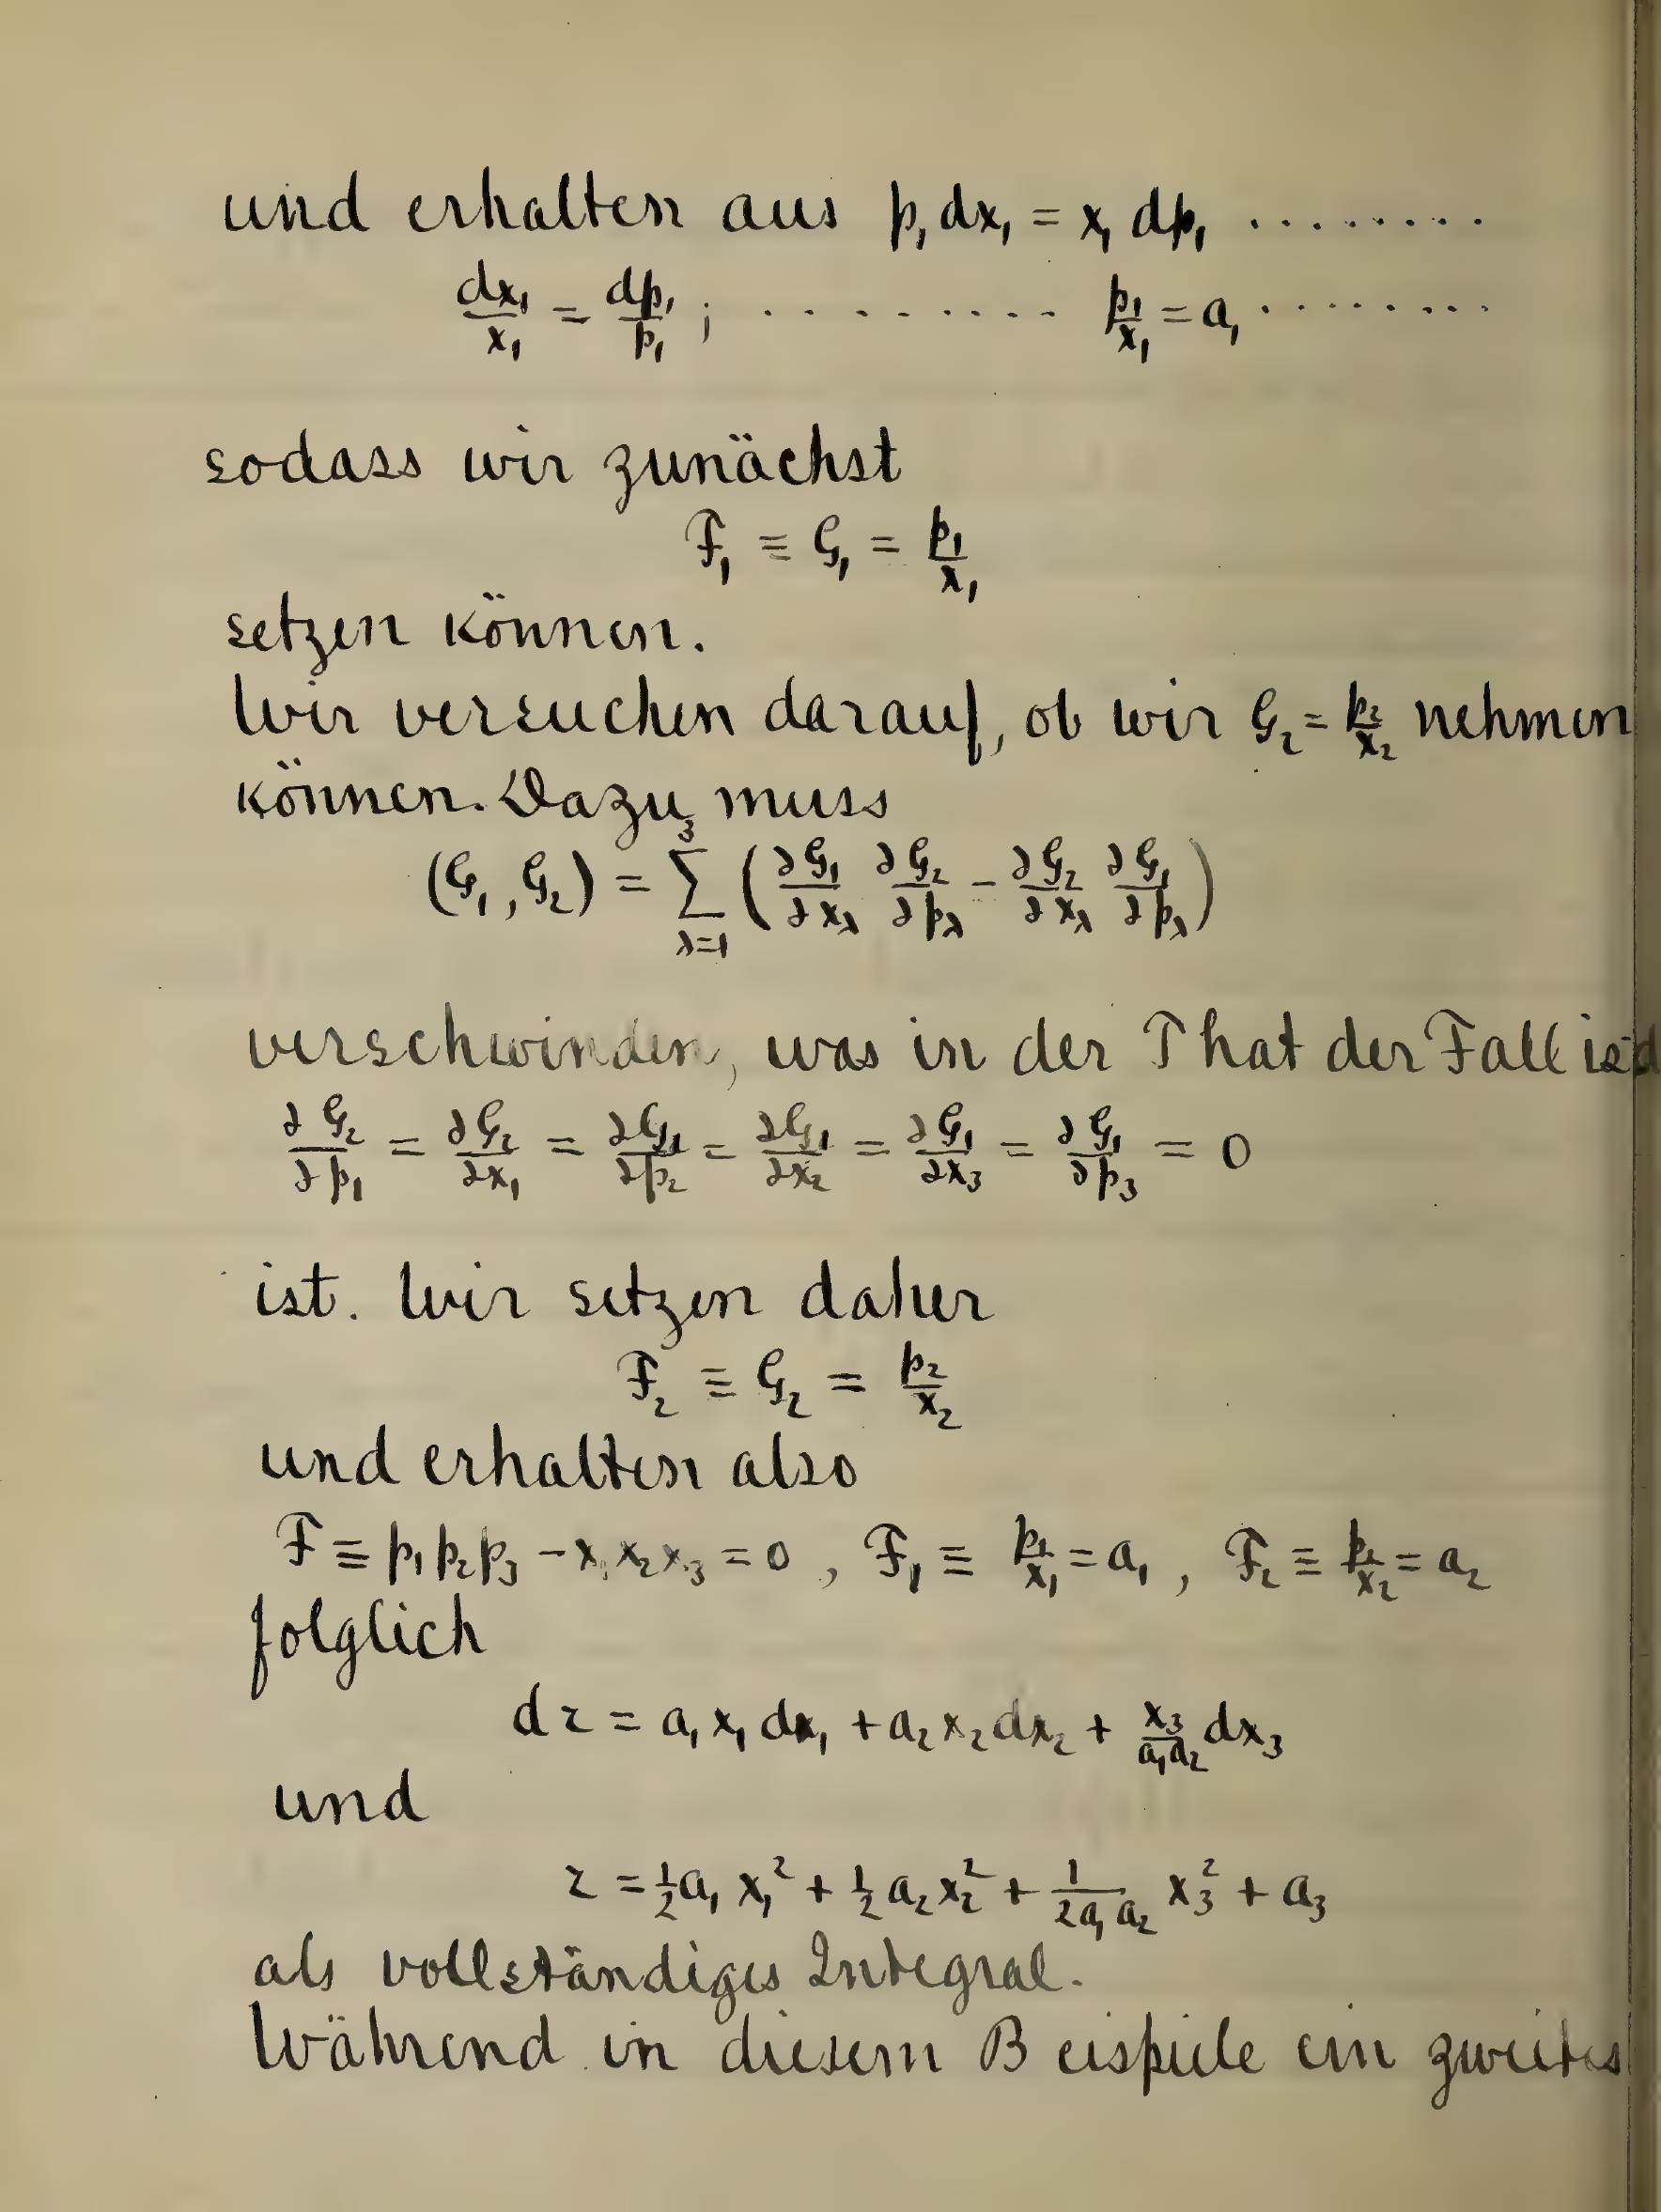 und erhalten aus p₁dx₁ = x₁ dp₁ ........
dx₁/x₁ = dp₁/p₁ ; ......... p₁/x₁ = a₁ ........
sodass wir zunächst
F₁ ≡ G₁ = p₁/x₁
setzen können.
Wir versuchen darauf, ob wir G₂ = p₂/x₂ nehmen
können. Dazu muss
(G₁, G₂) = ∑_{λ=1}^{3} (∂G₁/∂x_λ ∂G₂/∂p_λ - ∂G₂/∂x_λ ∂G₁/∂p_λ)
verschwinden, was in der That der Fall ist d
∂G₂/∂p₁ = ∂G₂/∂x₁ = ∂G₁/∂p₂ = ∂G₁/∂x₂ = ∂G₁/∂x₃ = ∂G₁/∂p₃ = 0
ist. Wir setzen daher
F₂ ≡ G₂ = p₂/x₂
und erhalten also
F ≡ p₁p₂p₃ - x₁x₂x₃ = 0 , F₁ ≡ p₁/x₁ = a₁ , F₂ ≡ p₂/x₂ = a₂
folglich
dz = a₁x₁dx₁ + a₂x₂dx₂ + x₃/(a₁a₂) dx₃
und
z = ½a₁x₁² + ½a₂x₂² + 1/(2a₁a₂) x₃² + a₃
als vollständiges Integral.
Während in diesem Beispiele ein zweites